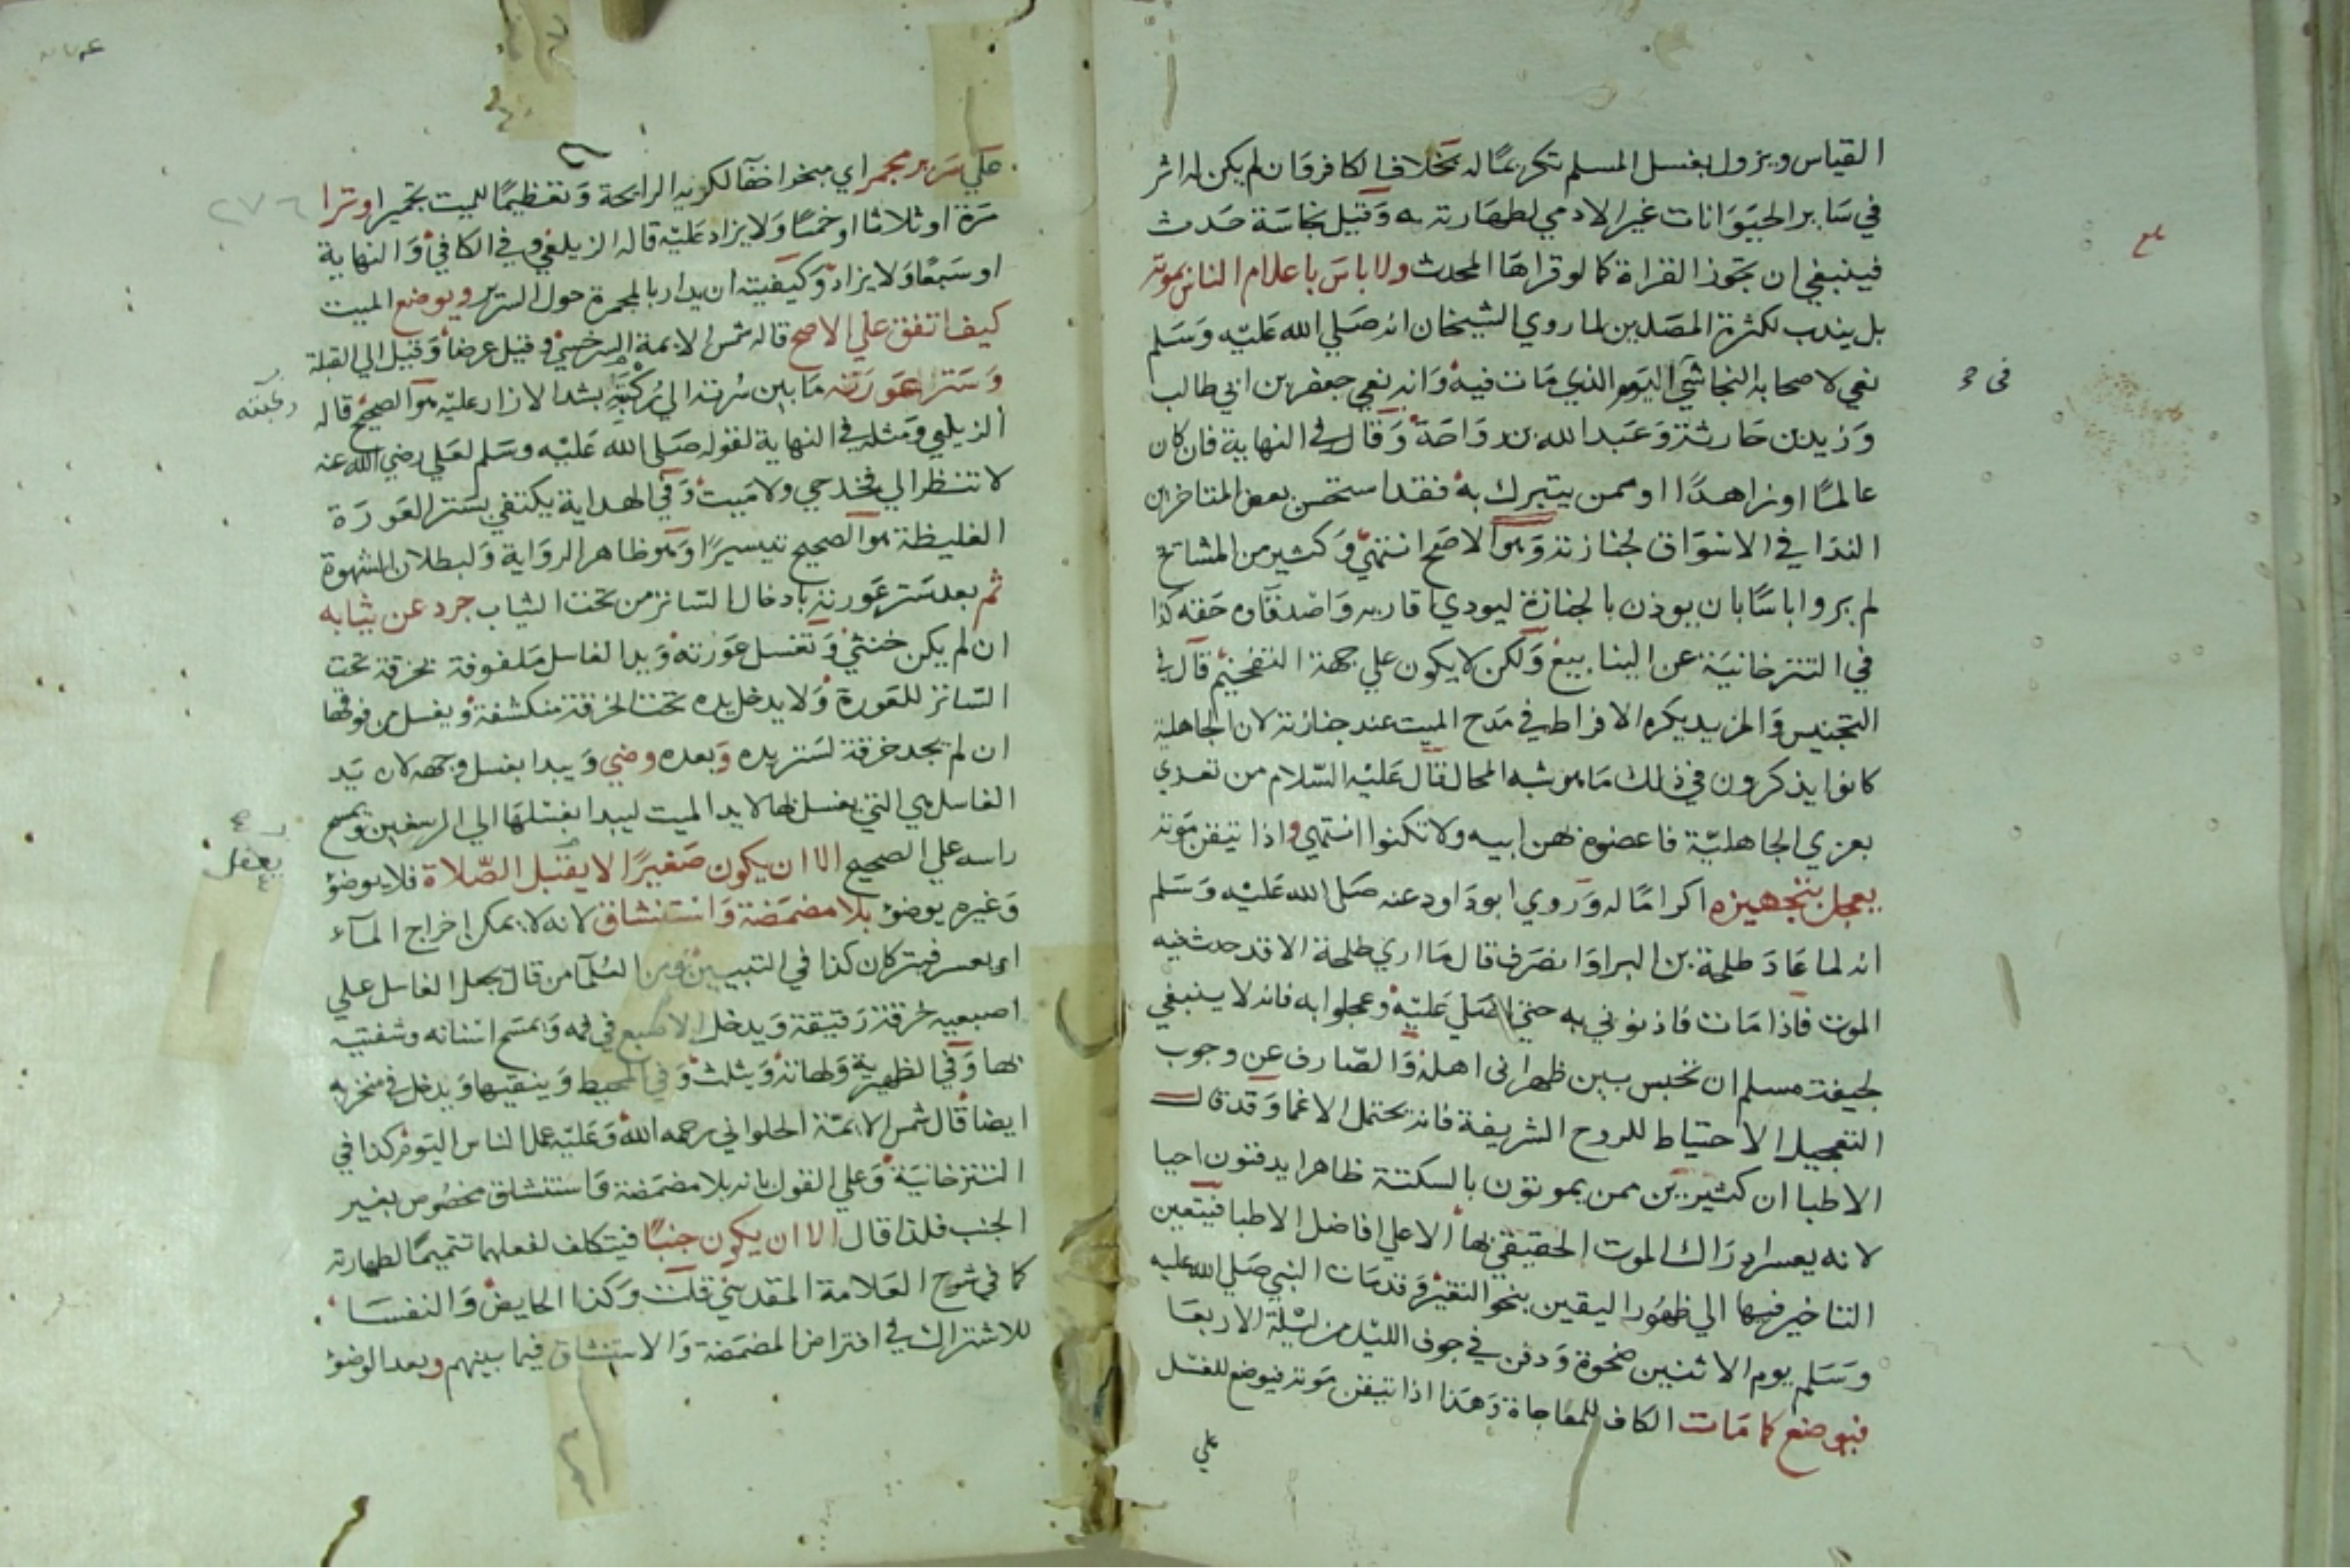 القياس ويزول بغسل المسلم تكريمًا له بخلاف الكافر فان لم يكن له اثر
في سَاير الحيَوَانات غير الادمي لطهَارته به وَقيل نجاسَة حَدث
فينبغي ان تجوز القراة كما لو قراهَا المحدث ولا باسَ باعلام الناس بموته
بل يندب لكثرة المصَلين لما روي الشيخان انه صَلي الله عَليْه وَسَلم
نعي لاصحابه النجاشي اليَوم الذي مَات فيه وَانه نعي جعفر بن ابي طالب
وَزيد بن حَارثة وَعَبد الله بن رَوَاحَة وَقال في النهاية فان كان
عالمًا او زاهدًا او ممن يتبرك به فقد استحسن بعض المتاخرين
الندَا في الاسْوَاق لجنازته وَهوَ الاصَح انتهي وَكثير من المشايخ
لم يروا باسًا بان يوذن بالجنازة ليودي اقاربه وَاصْدقاوه حَقه كذا
في التترخانيَة عن الينابيع وَلكن لا يكون علي جهة التفخيم قال في
التجنيس وَالمزيد يكره الافراط في مَدح الميت عند جنازته لان الجاهلية
كانوا يذكرون في ذلك مَا هو شبه المحال قال عَليْه السّلام من تعزي
بعزي الجاهليّة فاعضوه بهن ابيه ولا تكنوا انتهي واذا تيقن مَوته
يعجل بتجهيزه اكرامًا له وَروي ابو دَاود عنه صَلى الله عَليْه وَسَلم
انه لما عَادَ طلحة بن البرا وَانصَرف قال مَا اري طلحة الا قد حدث فيه
الموت فاذا مَات فاذنوني به حتي اصَلي عَليْه وعجلوا به فانه لا ينبغي
لجيفة مسلم ان تحبس بين ظهراني اهله وَالصّارف عن وجوب
التعجيل الاحتياط للروح الشريفة فانه يحتمل الاغما وَقد قال
الاطبا ان كثيرين ممن يموتون بالسكتة ظاهرا يدفنون احيا
لانه يعسر ادرَاك الموت الحقيقي بها الا علي افاضل الاطبا فيتعين
التاخير فيها الي ظهُور اليقين بنحو التغير وَقد مَات النبي صَلي الله عليه
وَسَلم يوم الاثنين ضحوة وَدفن في جوف الليْل من ليْلة الاربعَا
فيوضع كما مَات الكاف للمفاجاة وَهَذا اذا تيقن مَوته فيوضع للغسْل
علي
علي سَرير مجمر اي مبخر اخفآ لكريه الرايحة وَتعَظيمًا للميت تجميرا وترا
مَرة او ثلاثا او خمسًا وَلا يزاد عَليْه قاله الزيلعي وفي الكافي وَالنهاية
او سَبعًا وَلا يزاد وَكيفيته ان يدار بالمجمرة حول السّرير ويوضع الميت
كيف اتفق علي الاصح قاله شمس الايمة السرخسي وقيل عرضا وَقيل الي القبلة
وَستر عَورَته مَا بين سُرته الي رُكبَته بشد الازار عليْه هوَ الصحيح قاله
الزيلعي وَمثله في النهاية لقوله صَلي الله عَليْه وسَلم لعَلي رضي الله عنه
لا تنظر الي فخذ حي ولا مَيت وَفي الهداية يكتفي بسَتر العَورَة
الغليظة هوَ الصحيح تيسيرًا وَهو ظاهر الروَاية وَلبطلان الشهوة
ثم بعد سَتر عَورته بادخال السّاتر من تحت الثياب جرد عن ثيابه
ان لم يكن خنثي وَتغسل عَورته وَيد الغاسل مَلفوفة بخرقة تحت
السّاتر للعَورة وَلا يدخل يده تحت الخرقة منكشفة ويغسل من فوقها
ان لم يجد خرقة لسَتر يده وَبعده وضي وَيبدا بغسل وجهه لان يَد
الغاسل هي التي يغسل بها لا يد الميت ليبدا بغسْلهَا الي الرسغين ويمسح
راسه علي الصحيح الا ان يكون صَغيرًا لا يعقل الصّلاة فلا يوضؤ
وَغيره يوضؤ بلا مضمَضة وَاستنشاق لانه لا يمكن اخراج المآء
او يعسر فيترك كذا في التبيين ومن العُلمآ من قال يجعل الغاسل علي
اصبعيه خرقة رَقيقة وَيدخل الاصبع في فمه وَيمسَح اسْنانه وشفتيه
بها وَفي الظهيرية وَلهاته وَيثلث وَفي المحيط وَينقيها وَيدخل في منخريه
ايضا قال شمس الايمّة الحلواني رحمه الله وَعَليْه عمل الناس اليَوم كذا في
التترخانيَة وَعلي القول بانه بلا مضمَضة وَاستنشاق مخصُوص بغير
الجنب فلذا قال الا ان يكون جنبًا فيتكلف لفعلهما تتميمًا لطهارته
كما في شرح العَلامة المقدسي قلت وَكذا الحايض وَالنفسَا
للاشتراك في افتراض المضمَضة وَالاستنشاق فيما بينهم وبعد الوضؤ
٢٧٦
ركبته
يعقل